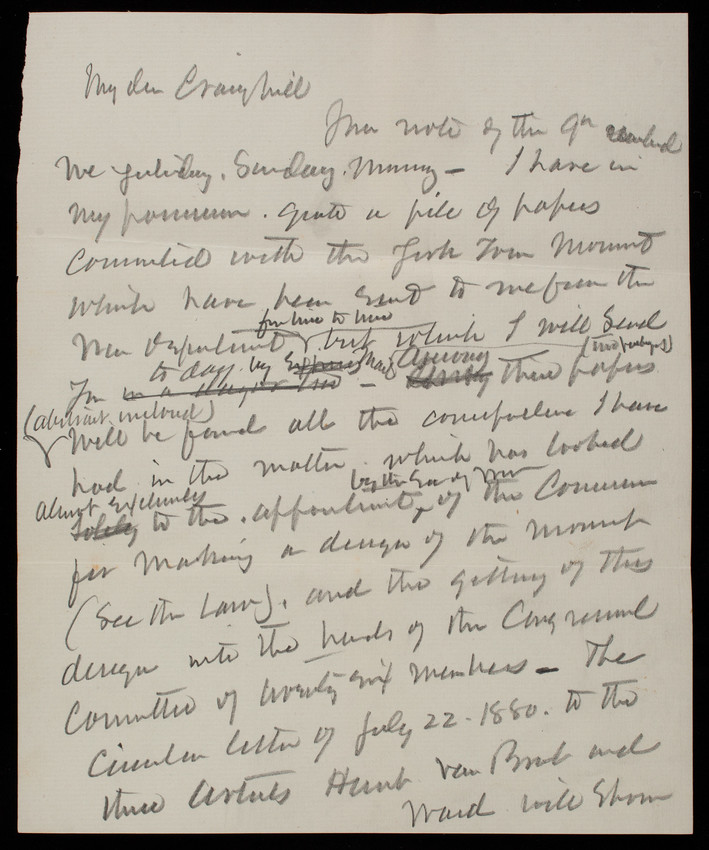 My dear Craighill
Your note of the 9th reached
me yesterday, Sunday, Morning - I have in
my possession . quite a pile of papers
connected with the York Town Monument
which have been sent to me from the
War Department from time to time but which I will Send
You in a day or two to day by Express - Among these papers (two packages)
(abstract inclosed)
will be found all the correspondence I have
had in the matter . which has looked
almost exclusively solely to the . appointment, by the Sec of War of the Commission
for making a design of the Monument
(See the Law), and the getting of this
design into the hands of the Congressional
Committee of twenty six members - The
Circular letter of July 22 - 1880. to the
three Artists Hunt Van Brunt and
Ward will Show